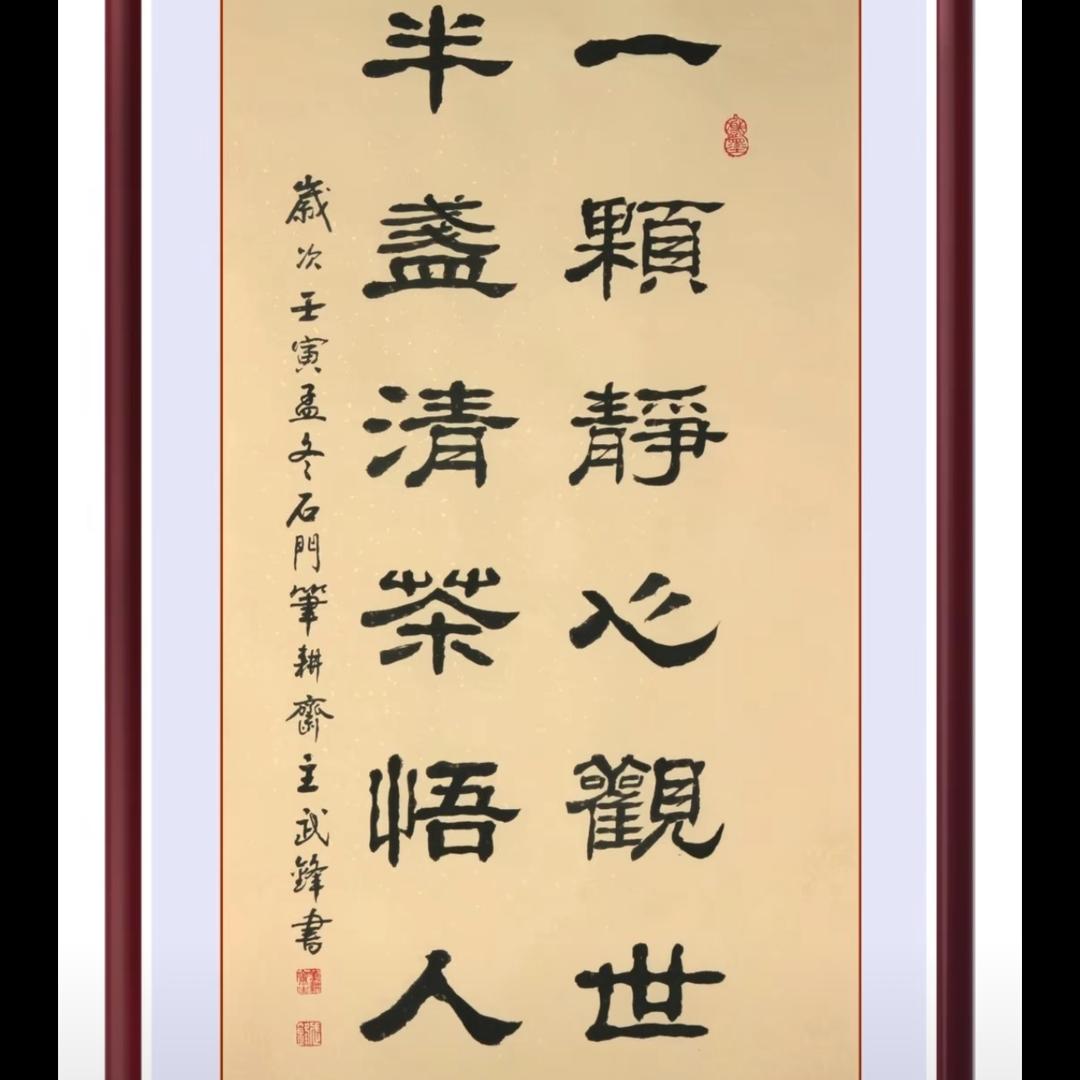 一顆靜心觀世
半盞清茶悟人
歲次壬寅孟冬石門筆耕齋主武鋒書